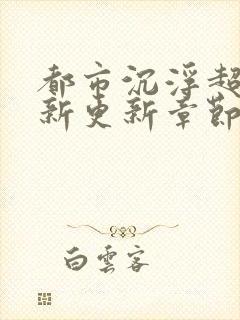 都市沉浮超
新更新章节
白云客